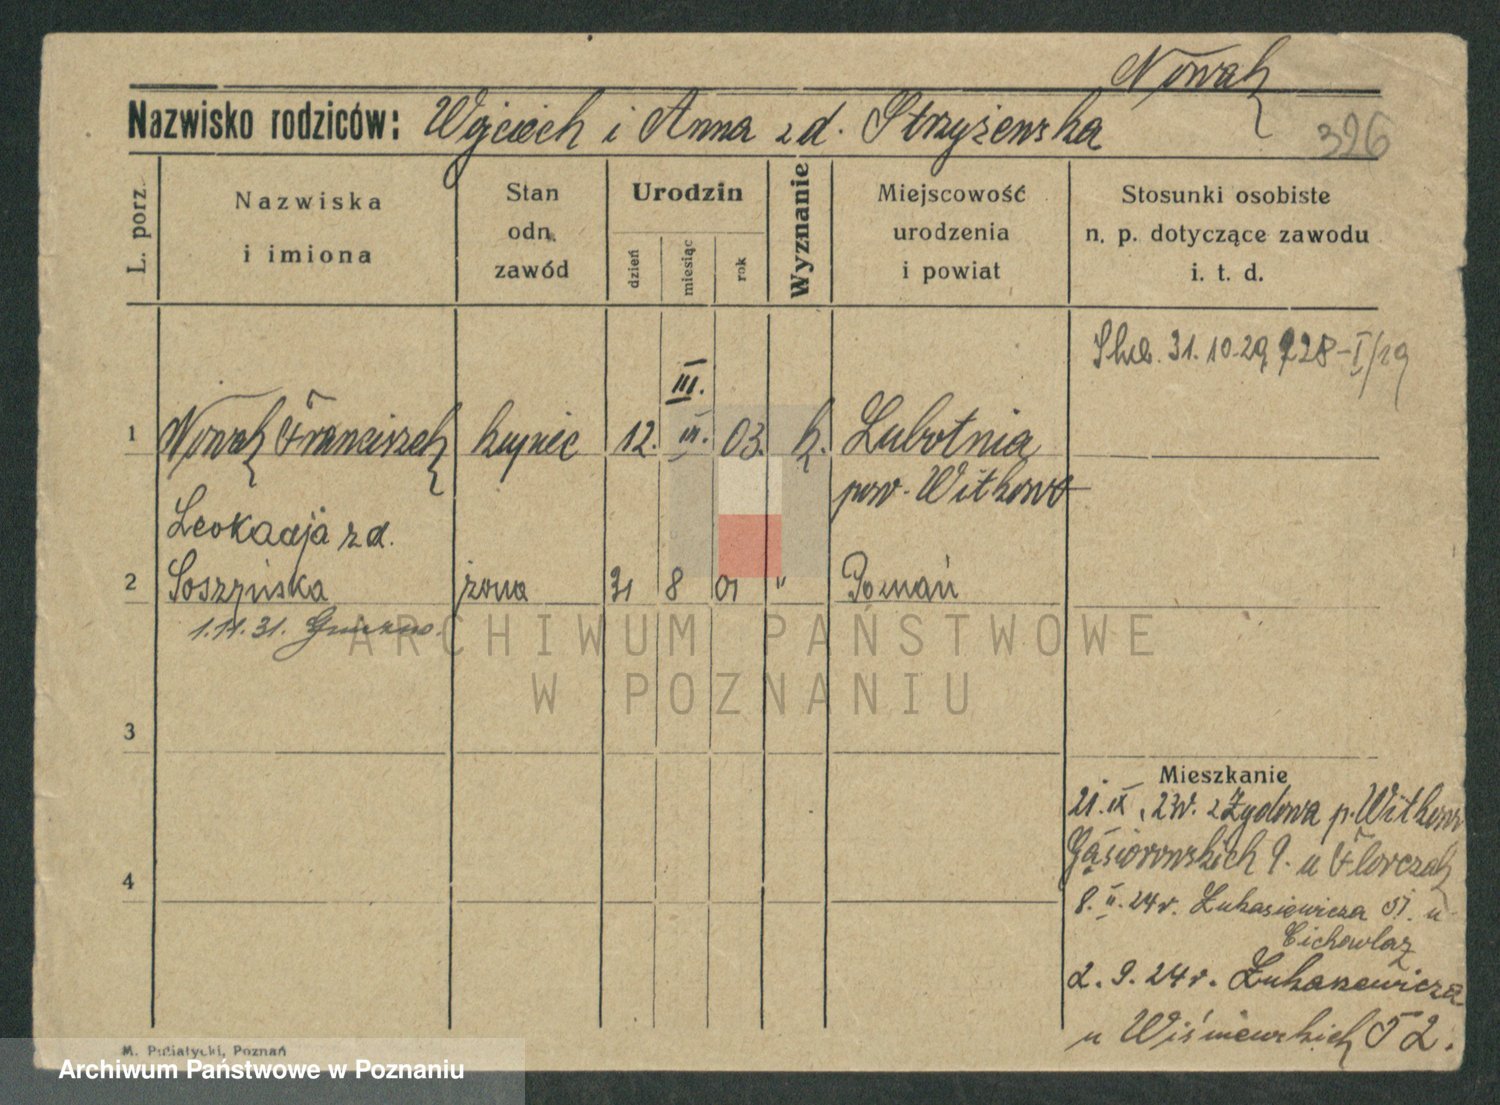 Nowak
Nazwisko rodziców: Wojciech i Anna z d. Strzyżewska
326
L. porz.
Nazwiska
i imiona
Stan
odn.
zawód
Urodzin
dzień
miesiąc
rok
Wyznanie
Miejscowość
urodzenia
i powiat
Stosunki osobiste
n. p. dotyczące zawodu
i. t. d.
31.10.29 728-I/29
III.
1 Nowak Franciszek kupiec 12. 03. k. Lubotnia
pow. Witkowo
Leokadja z d.
2 Soszyńska żona 31 8 01 " Poznań
1.11.31. Gniezno.
ARCHIWUM PAŃSTWOWE
W POZNANIU
3
Mieszkanie
21. IX. 23r. z Żydowa p. Witkowo
Gąsiorowskich 9. u Florczak
4
8. II. 24r. Łukasiewicza 51. u
2. 9. 24r. Łukasiewicza
u Wiśniewskich 52.
M. Putiatycki, Poznań
Archiwum Państwowe w Poznaniu